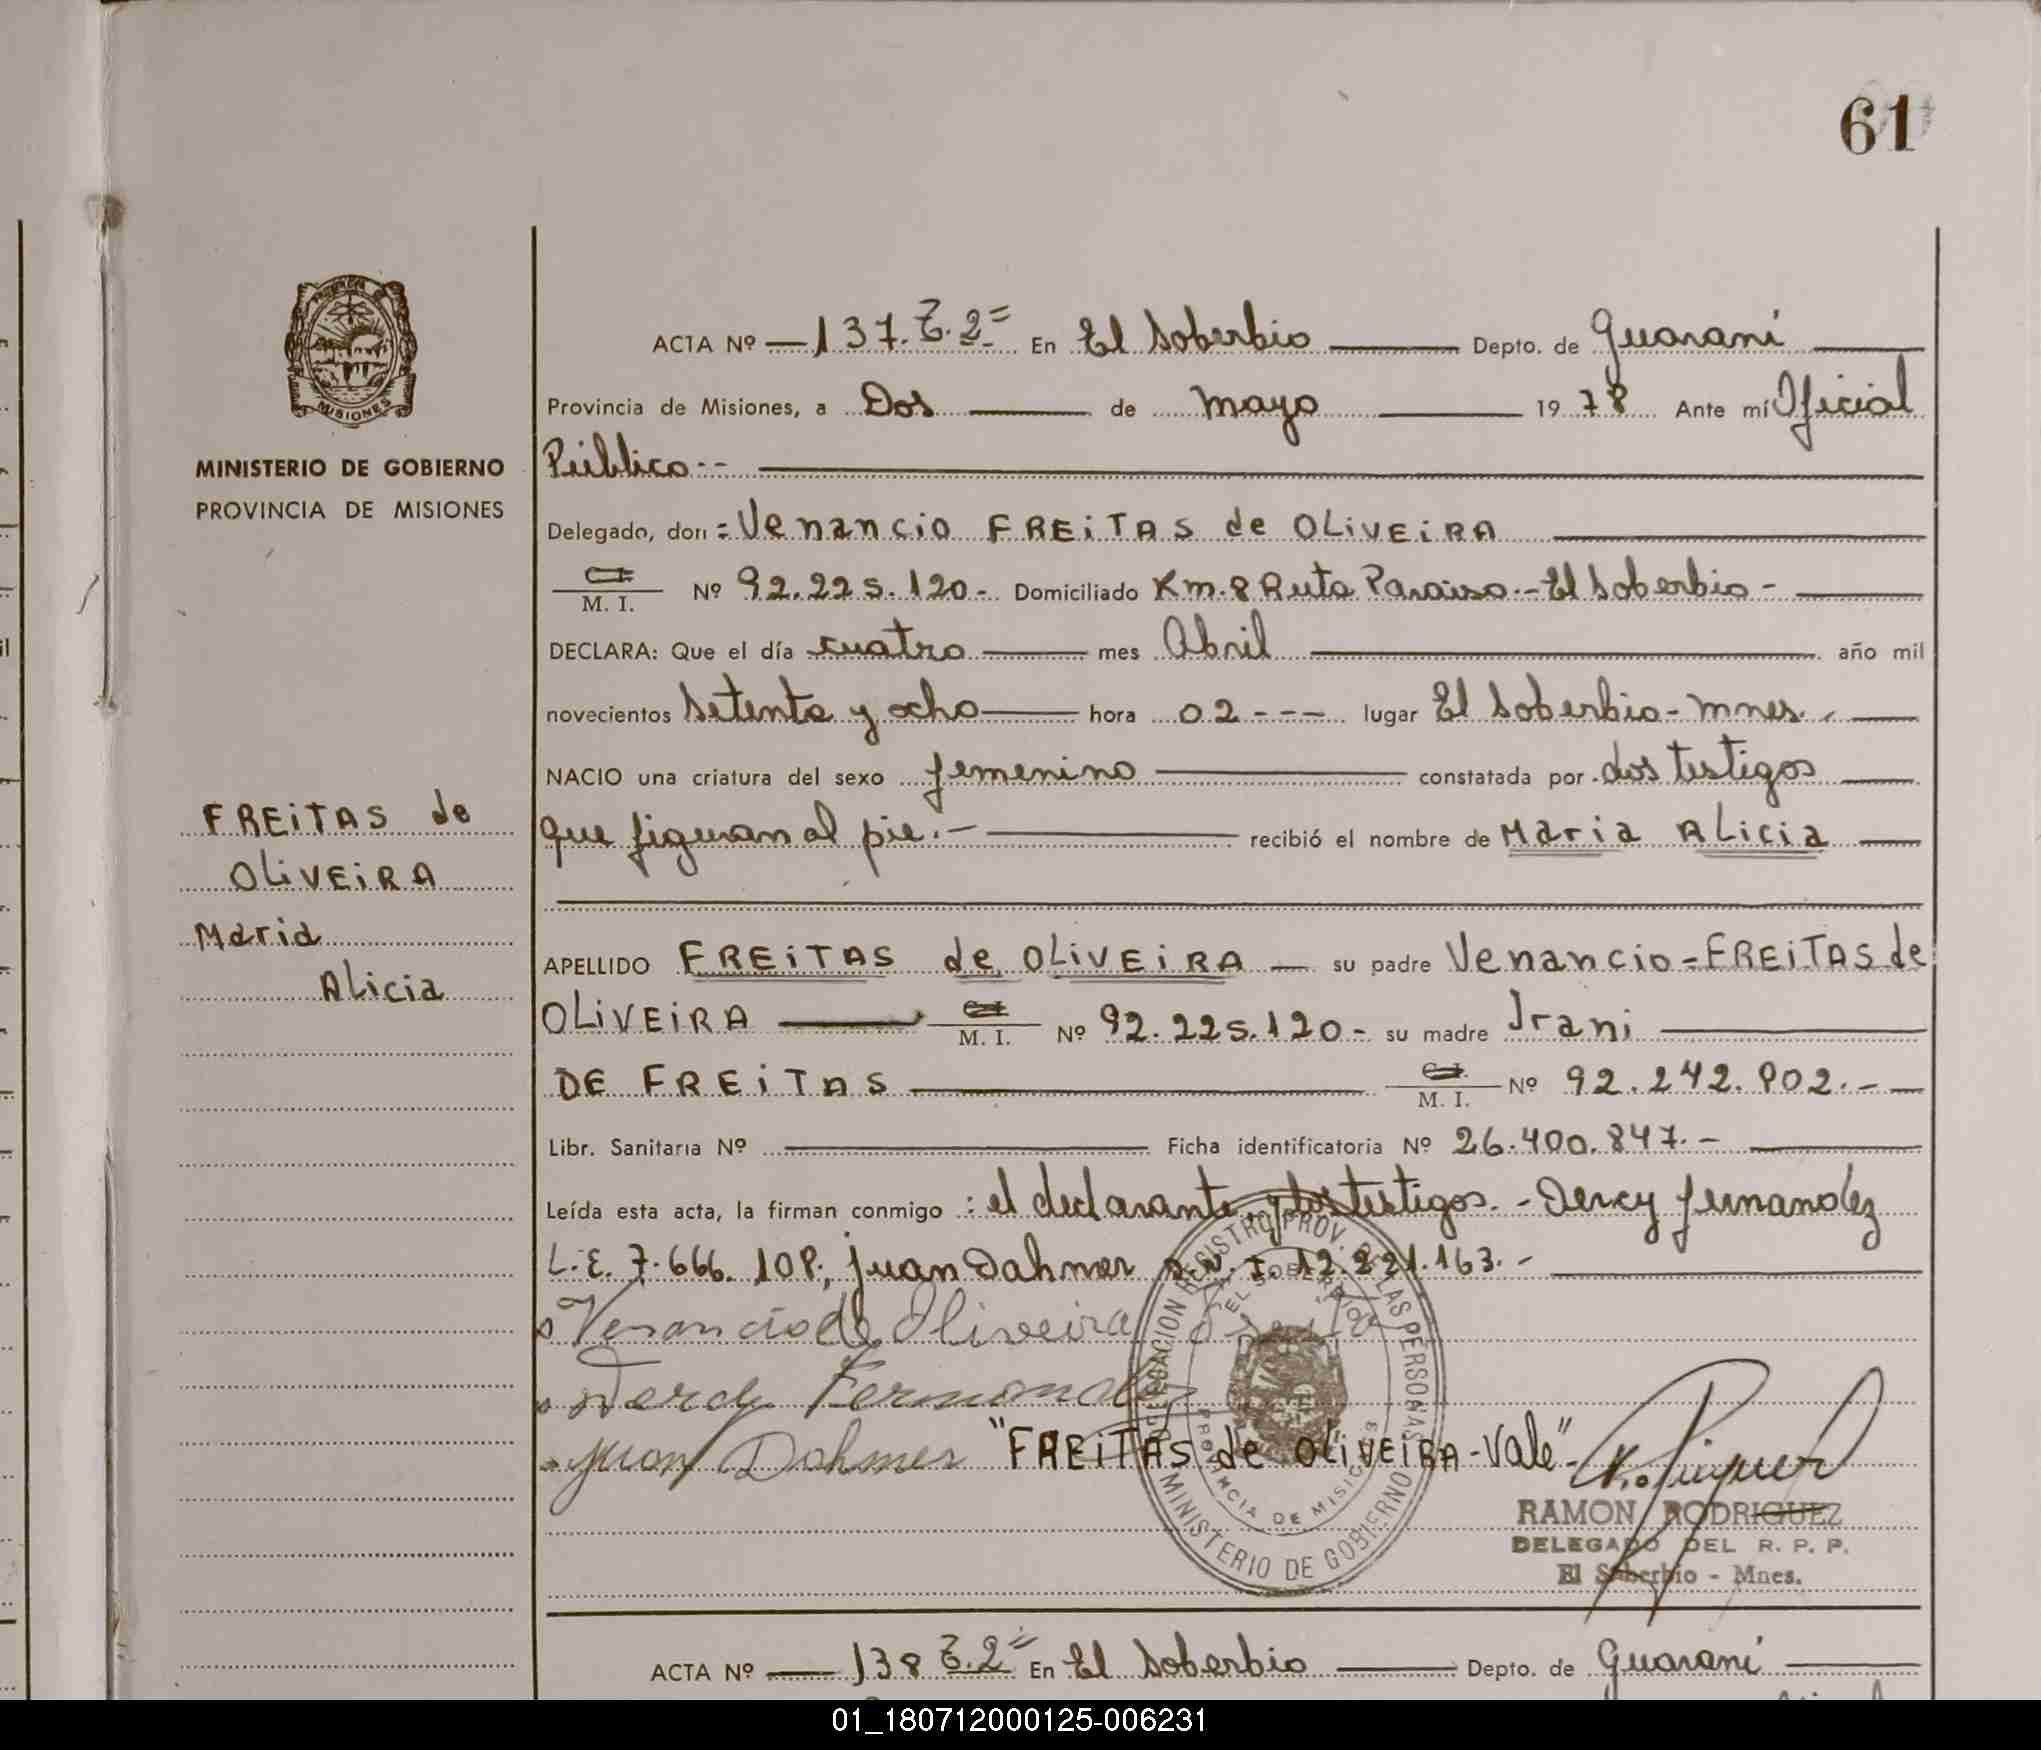 61
ACTA Nº 137. T. 2º En El Soberbio Depto. de Guaraní
Provincia de Misiones, a Dos de mayo 1978 Ante mí Oficial
Público.-
MINISTERIO DE GOBIERNO
PROVINCIA DE MISIONES
MISIONES
Delegado, don: Venancio FREITAS de OLIVEIRA
M. I. Nº 92.225.120.- Domiciliado Km. 8 Ruta Paraiso.- El Soberbio -
DECLARA: Que el día cuatro mes Abril año mil
novecientos setenta y ocho hora 02 --- lugar El Soberbio - Mnes.
NACIO una criatura del sexo femenino constatada por dos testigos
que figuran al pie.- recibió el nombre de Maria Alicia
FREITAS de
OLIVEIRA
Maria
Alicia
APELLIDO FREITAS de OLIVEIRA su padre Venancio - FREITAS de
OLIVEIRA M. I. Nº 92.225.120.- su madre Irani
DE FREITAS M. I. Nº 92.242.802.-
Libr. Sanitaria Nº Ficha identificatoria Nº 26.400.847.-
Leída esta acta, la firman conmigo: el declarante y los testigos.- Dercy Fernandez
L.E. 7.666.108, Juan Dahmer D.N.I. 12.221.163.-
Venancio de Oliveira Freita
Dercy Fernandez
Juan Dahmer "FREITAS de OLIVEIRA - Vale"-
DELEGACION REGISTRO PROV. DE LAS PERSONAS
EL SOBERBIO
PROVINCIA DE MISIONES
MINISTERIO DE GOBIERNO
RAMON RODRIGUEZ
DELEGADO DEL R. P. P.
El Soberbio - Mnes.
ACTA Nº 138 T. 2º En El Soberbio Depto. de Guaraní
01_180712000125-006231